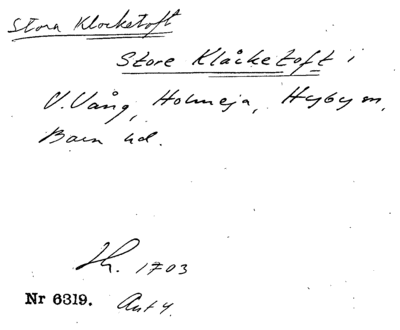 Stora Klocketoft
Store Klåcketoft i
V. Vång, Holmeja, Hyby sn,
Bara hd.
Lh. 1703
Nr 6319. Ant 4.